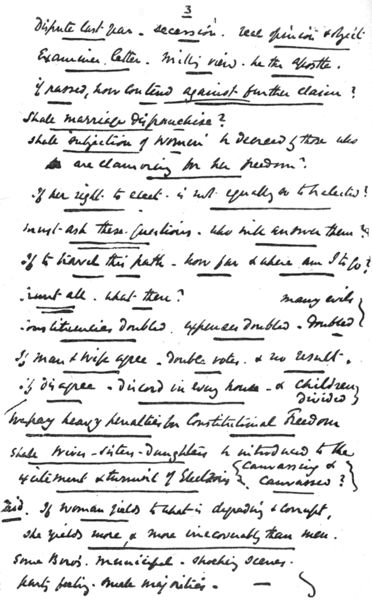 3
Dispute last year - secession. real opinion & object
Examiner letter. Mill's view. he the apostle.
if passed, how contend against further claim?
Shall marriage disfranchise?
Shall subjection of Women be decreed by those who
are clamoring for her freedom?
If her right to elect - is not equally so to be elected?
I must ask these questions. who will answer them?
If to travel this path - how far & where am I to go?
Grant all. what then? many evils
Constituencies doubled. expenses doubled - Doubled
If man & wife agree - Double votes. & no result.
if disagree - Discord in every house - & children divided
We pay heavy penalties for Constitutional Freedom
Shall Wives - Sisters - Daughters be introduced to the
excitement & turmoil of Elections? canvassing & canvassed?
If woman yields to what is degrading & corrupt,
she yields more, & more irrecoverably than men.
Some Boro's. Municipal - shocking scenes.
party feeling - small majorities -